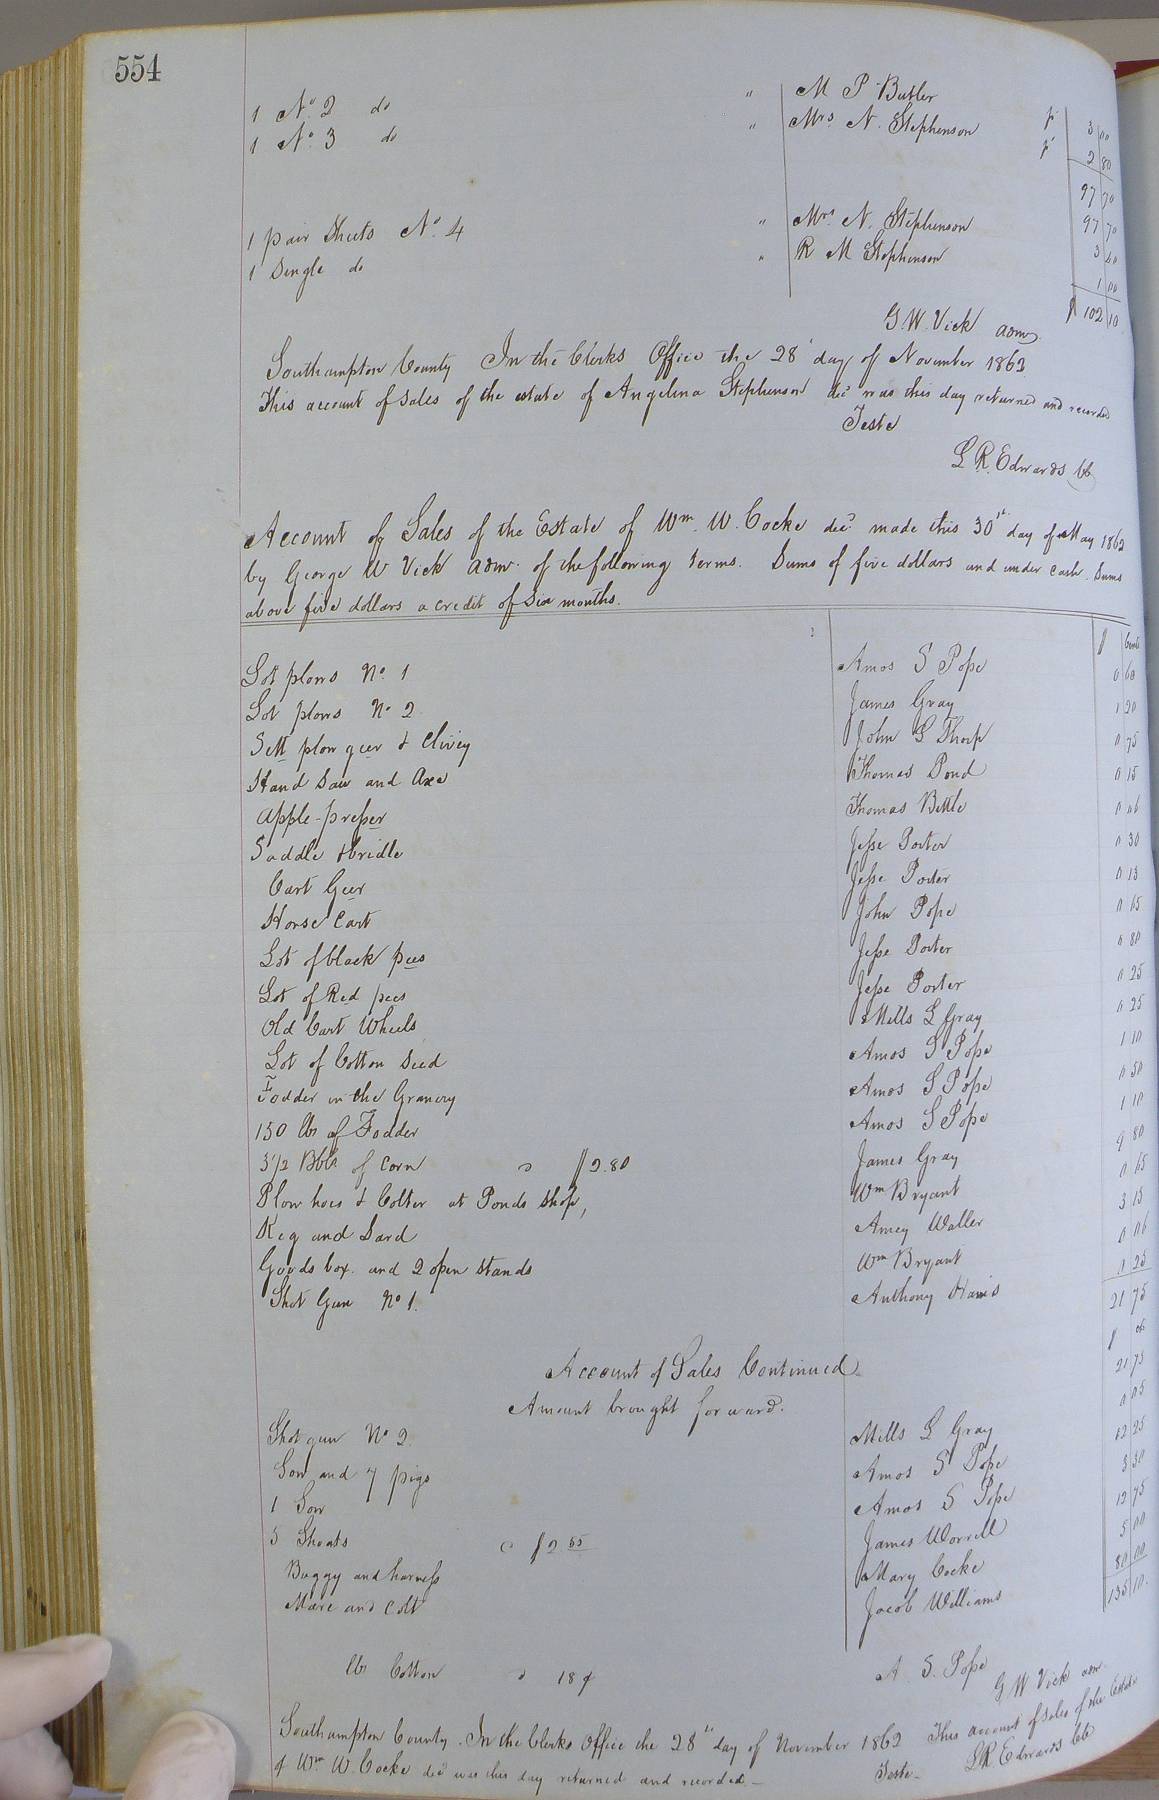 554
1 No. 2 do " M P Butler $ 3 00
1 No. 3 do " Mrs N. Stephenson $ 2 80
97 70
97 70
1 pair Sheets No. 4 " Mrs N. Stephenson 3 40
1 Single do " R M Stephenson 1 00
$ 102 10
G. W. Vick adm
Southampton County In the Clerks Office the 28 day of November 1862
This account of sales of the estate of Angelina Stephenson decd was this day returned and recorded
Teste
L. R. Edwards Clk
Account of Sales of the Estate of Wm. W. Cocke decd. made this 30th day of May 1862
by George W Vick adm. of the following terms. Sums of five dollars and under cash. Sums
above five dollars a credit of Six months.
$ Cents
Lot plows No. 1 Amos S Pope 0 60
Lot plows No 2 James Gray 1 20
Sett plow geer & Clivey John S Thorp 0 75
Hand Saw and Axe Thomas Pond 0 15
Apple-presser Thomas Bittle 0 06
Saddle & bridle Jesse Porter 0 30
Cart Geer Jesse Porter 0 13
Horse Cart John Pope 0 65
Lot of black pees Jesse Porter 0 80
Lot of Red pees Jesse Porter 0 25
Old Cart Wheels Mills L Gray 0 25
Lot of Cotton Seed Amos S Pope 1 10
Fodder in the Granery Amos S Pope 0 50
150 lbs of Fodder Amos S Pope 1 10
3 1/2 Bbls of Corn @ $2.80 James Gray 9 80
Plow hoes & Colter at Ponds Shop, Wm Bryant 0 65
Keg and Lard Amey Waller 3 15
Goods box. and 2 open stands Wm Bryant 0 06
Shot Gun No 1. Anthony Harris 0 25
21 75
Account of Sales Continued $ cts
Amount brought forward. 21 75
Shot gun No 2 Mills L Gray 0 05
Sow and 7 pigs Amos S Pope 12 25
1 Sow Amos S Pope 3 30
5 Shoats @ $2 55 James Worrell 12 75
Buggy and harness Mary Cocke 5 00
Mare and Colt Jacob Williams 80 00
135 10
lbs Cotton @ 18 ¢ A. S. Pope
G W Vick adm
Southampton County. In the Clerks Office the 28th day of November 1862 This account of sales of the Estate
of Wm. W. Cocke decd was this day returned and recorded.— Teste— L R. Edwards Clk